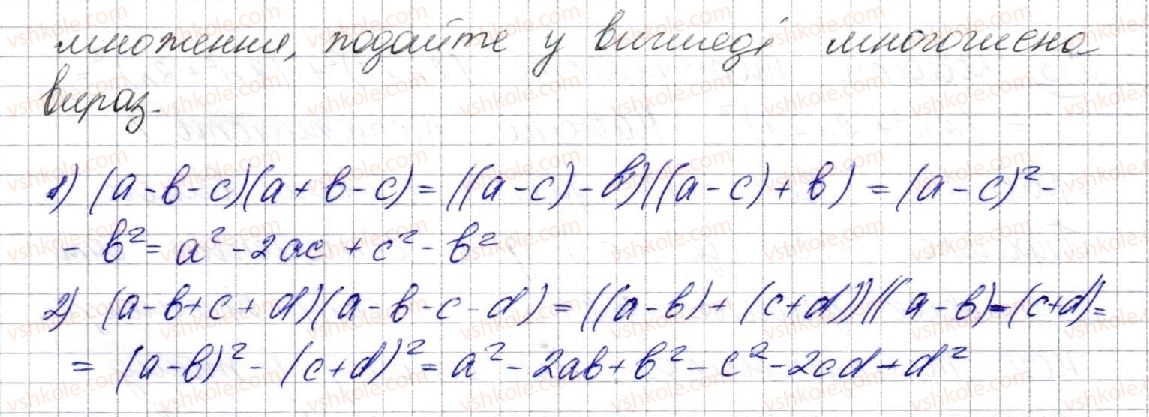 множення, подайте у вигляді многочлена
вираз.
1) (a-b-c)(a+b-c)=((a-c)-b)((a-c)+b)=(a-c)²-
-b²=a²-2ac+c²-b²
2) (a-b+c+d)(a-b-c-d)=((a-b)+(c+d))((a-b)-(c+d)=
=(a-b)²-(c+d)²=a²-2ab+b²-c²-2cd+d²